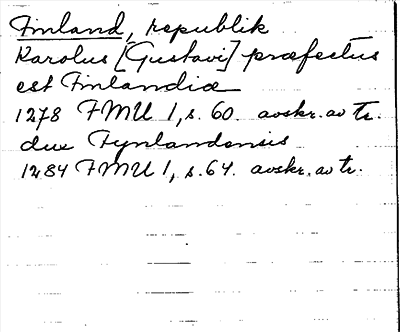 Finland, republik
Karolus [Gustavi] præfectus
est Finlandiæ
1278 FMU 1, s. 60. avskr. av tr.
dux Fynlandensis
1284 FMU 1, s. 64. avskr. av tr.